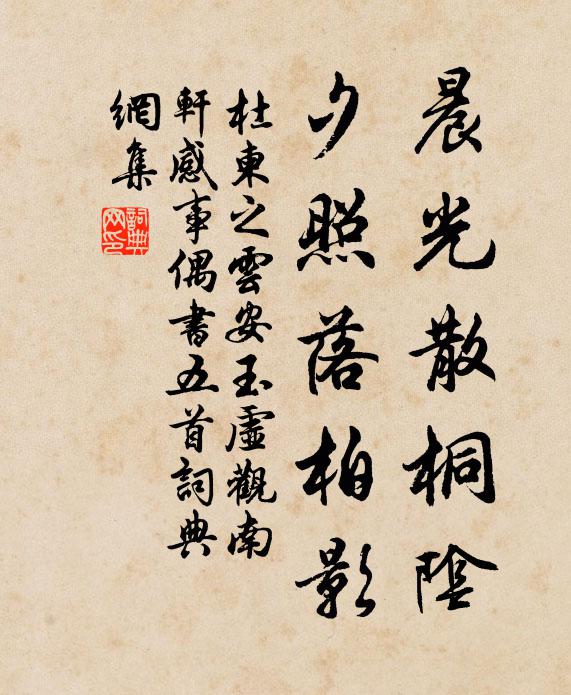 晨光散桐陰
夕照落柏影
杜東之雲安玉虛觀南
軒感事偶書五首詞典
網集
詞典网印